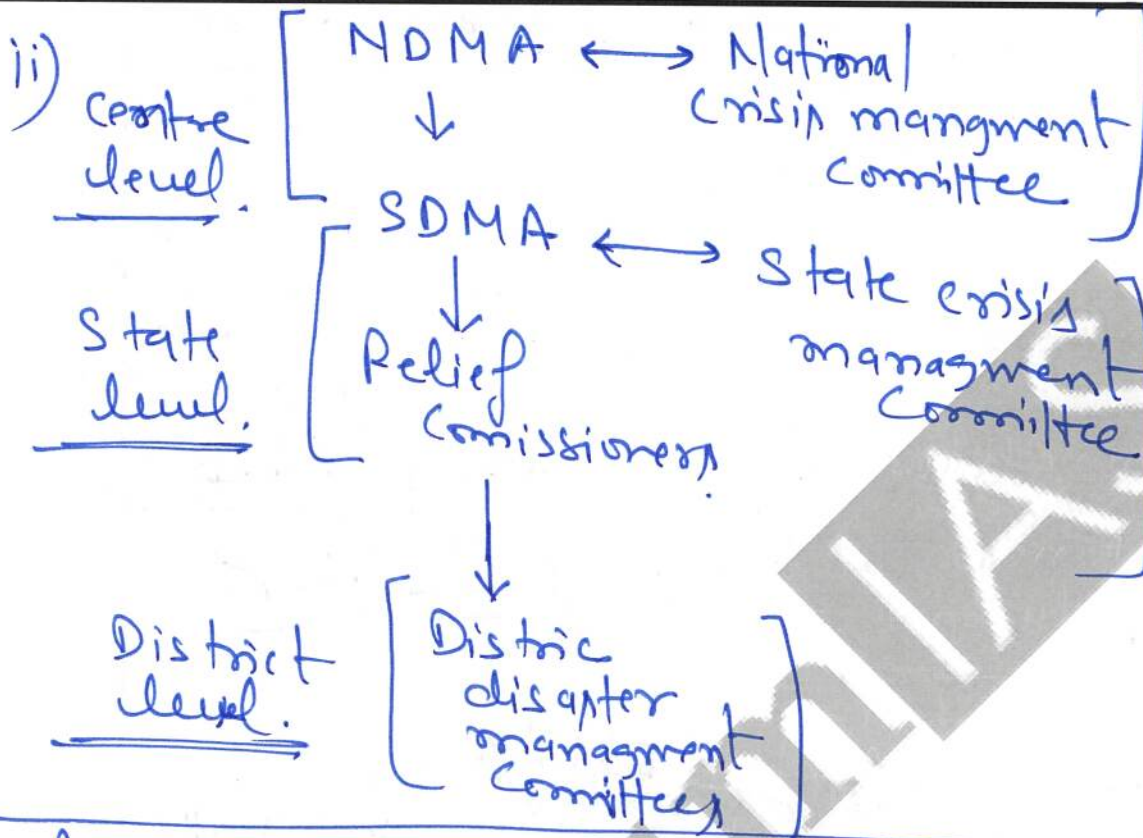 ii) Centre level.
NDMA ↔ National
Crisis mangment
Committee
↓
SDMA ↔ State crisis
managment
Committee
State level.
↓
Relief
Comissioners.
↓
District level.
Distric
disaster
managment
Committees